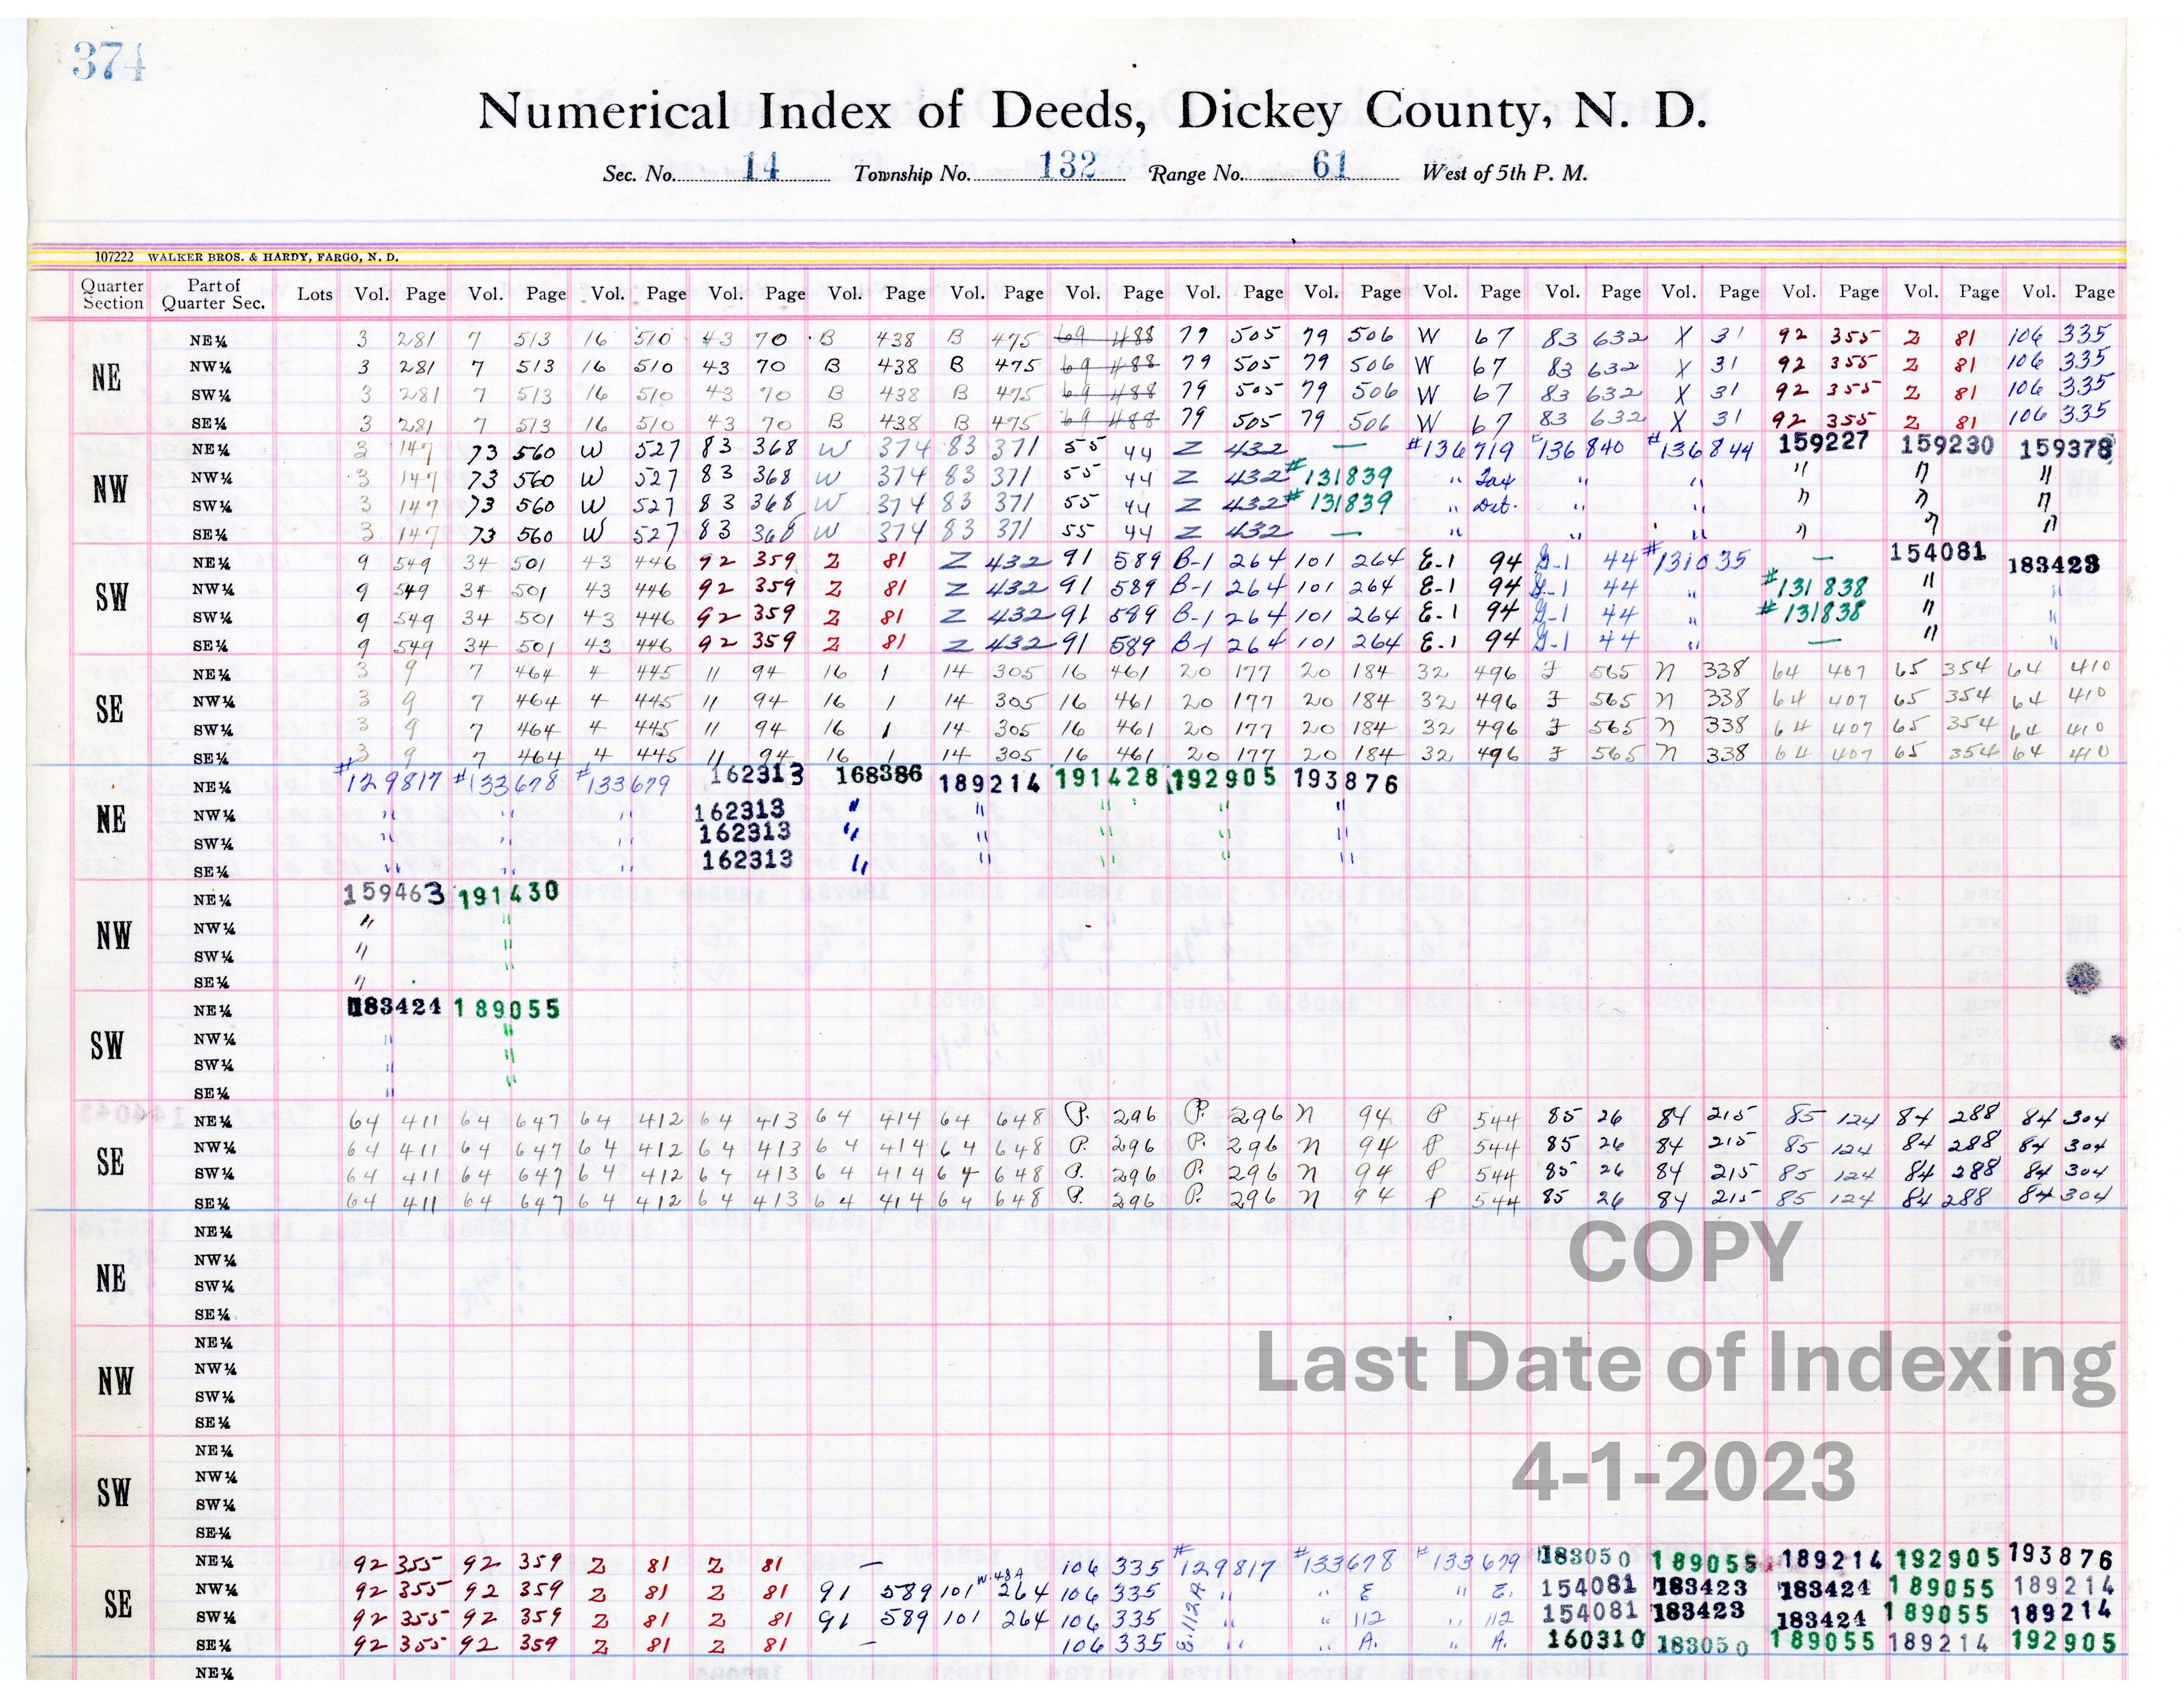 374
Numerical Index of Deeds, Dickey County, N. D.
Sec. No. 14 Township No. 132 Range No. 61 West of 5th P. M.
107222 WALKER BROS. & HARDY, FARGO, N. D.
Quarter Section Part of Quarter Sec. Lots Vol. Page Vol. Page Vol. Page Vol. Page Vol. Page Vol. Page Vol. Page Vol. Page Vol. Page Vol. Page Vol. Page Vol. Page Vol. Page Vol. Page Vol. Page
NE
NE¼ 3 281 7 513 16 510 43 70 B 438 B 475 69 488 79 505 79 506 W 67 83 632 X 31 92 355 Z 81 106 335
NW¼ 3 281 7 513 16 510 43 70 B 438 B 475 69 488 79 505 79 506 W 67 83 632 X 31 92 355 Z 81 106 335
SW¼ 3 281 7 513 16 510 43 70 B 438 B 475 69 488 79 505 79 506 W 67 83 632 X 31 92 355 Z 81 106 335
SE¼ 3 281 7 513 16 510 43 70 B 438 B 475 69 488 79 505 79 506 W 67 83 632 X 31 92 355 Z 81 106 335
NW
NE¼ 3 147 73 560 W 527 83 368 W 374 83 371 55 44 Z 432 — #136719 #136840 #136844 159227 159230 159378
NW¼ 3 147 73 560 W 527 83 368 W 374 83 371 55 44 Z 432 #131839 " Tax " " " " "
SW¼ 3 147 73 560 W 527 83 368 W 374 83 371 55 44 Z 432 #131839 " Det. " " " " "
SE¼ 3 147 73 560 W 527 83 368 W 374 83 371 55 44 Z 432 — " " " " " "
SW
NE¼ 9 549 34 501 43 446 92 359 Z 81 Z 432 91 589 B-1 264 101 264 E-1 94 G-1 44 #131035 — 154081 183423
NW¼ 9 549 34 501 43 446 92 359 Z 81 Z 432 91 589 B-1 264 101 264 E-1 94 G-1 44 " #131838 " "
SW¼ 9 549 34 501 43 446 92 359 Z 81 Z 432 91 589 B-1 264 101 264 E-1 94 G-1 44 " #131838 " "
SE¼ 9 549 34 501 43 446 92 359 Z 81 Z 432 91 589 B-1 264 101 264 E-1 94 G-1 44 " — " "
SE
NE¼ 3 9 7 464 4 445 11 94 16 1 14 305 16 461 20 177 20 184 32 496 F 565 N 338 64 407 65 354 64 410
NW¼ 3 9 7 464 4 445 11 94 16 1 14 305 16 461 20 177 20 184 32 496 F 565 N 338 64 407 65 354 64 410
SW¼ 3 9 7 464 4 445 11 94 16 1 14 305 16 461 20 177 20 184 32 496 F 565 N 338 64 407 65 354 64 410
SE¼ 3 9 7 464 4 445 11 94 16 1 14 305 16 461 20 177 20 184 32 496 F 565 N 338 64 407 65 354 64 410
NE
NE¼ #129817 #133678 #133679 162313 168386 189214 191428 192905 193876
NW¼ " " " 162313 " " " " "
SW¼ " " " 162313 " " " " "
SE¼ " " " 162313 " " " " "
NW
NE¼ 159463 191430
NW¼ " "
SW¼ " "
SE¼ "
SW
NE¼ 183424 189055
NW¼ " "
SW¼ " "
SE¼ "
SE
NE¼ 64 411 64 647 64 412 64 413 64 414 64 648 P. 296 P. 296 N 94 P 544 85 26 84 215 85 124 84 288 84 304
NW¼ 64 411 64 647 64 412 64 413 64 414 64 648 P. 296 P. 296 N 94 P 544 85 26 84 215 85 124 84 288 84 304
SW¼ 64 411 64 647 64 412 64 413 64 414 64 648 P. 296 P. 296 N 94 P 544 85 26 84 215 85 124 84 288 84 304
SE¼ 64 411 64 647 64 412 64 413 64 414 64 648 P. 296 P. 296 N 94 P 544 85 26 84 215 85 124 84 288 84 304
NE
NE¼
NW¼
SW¼
SE¼
COPY
NW
NE¼
NW¼
SW¼
SE¼
Last Date of Indexing
SW
NE¼
NW¼
SW¼
SE¼
4-1-2023
SE
NE¼ 92 355 92 359 Z 81 Z 81 — 106 335 #129817 #133678 #133679 183050 189055 189214 192905 193876
NW¼ 92 355 92 359 Z 81 Z 81 91 589 101 W.48A 264 106 335 E.112A " " E " E. 154081 183423 183424 189055 189214
SW¼ 92 355 92 359 Z 81 Z 81 91 589 101 264 106 335 " " 112 " 112 154081 183423 183424 189055 189214
SE¼ 92 355 92 359 Z 81 Z 81 — 106 335 " " A. " A. 160310 183050 189055 189214 192905
NE¼